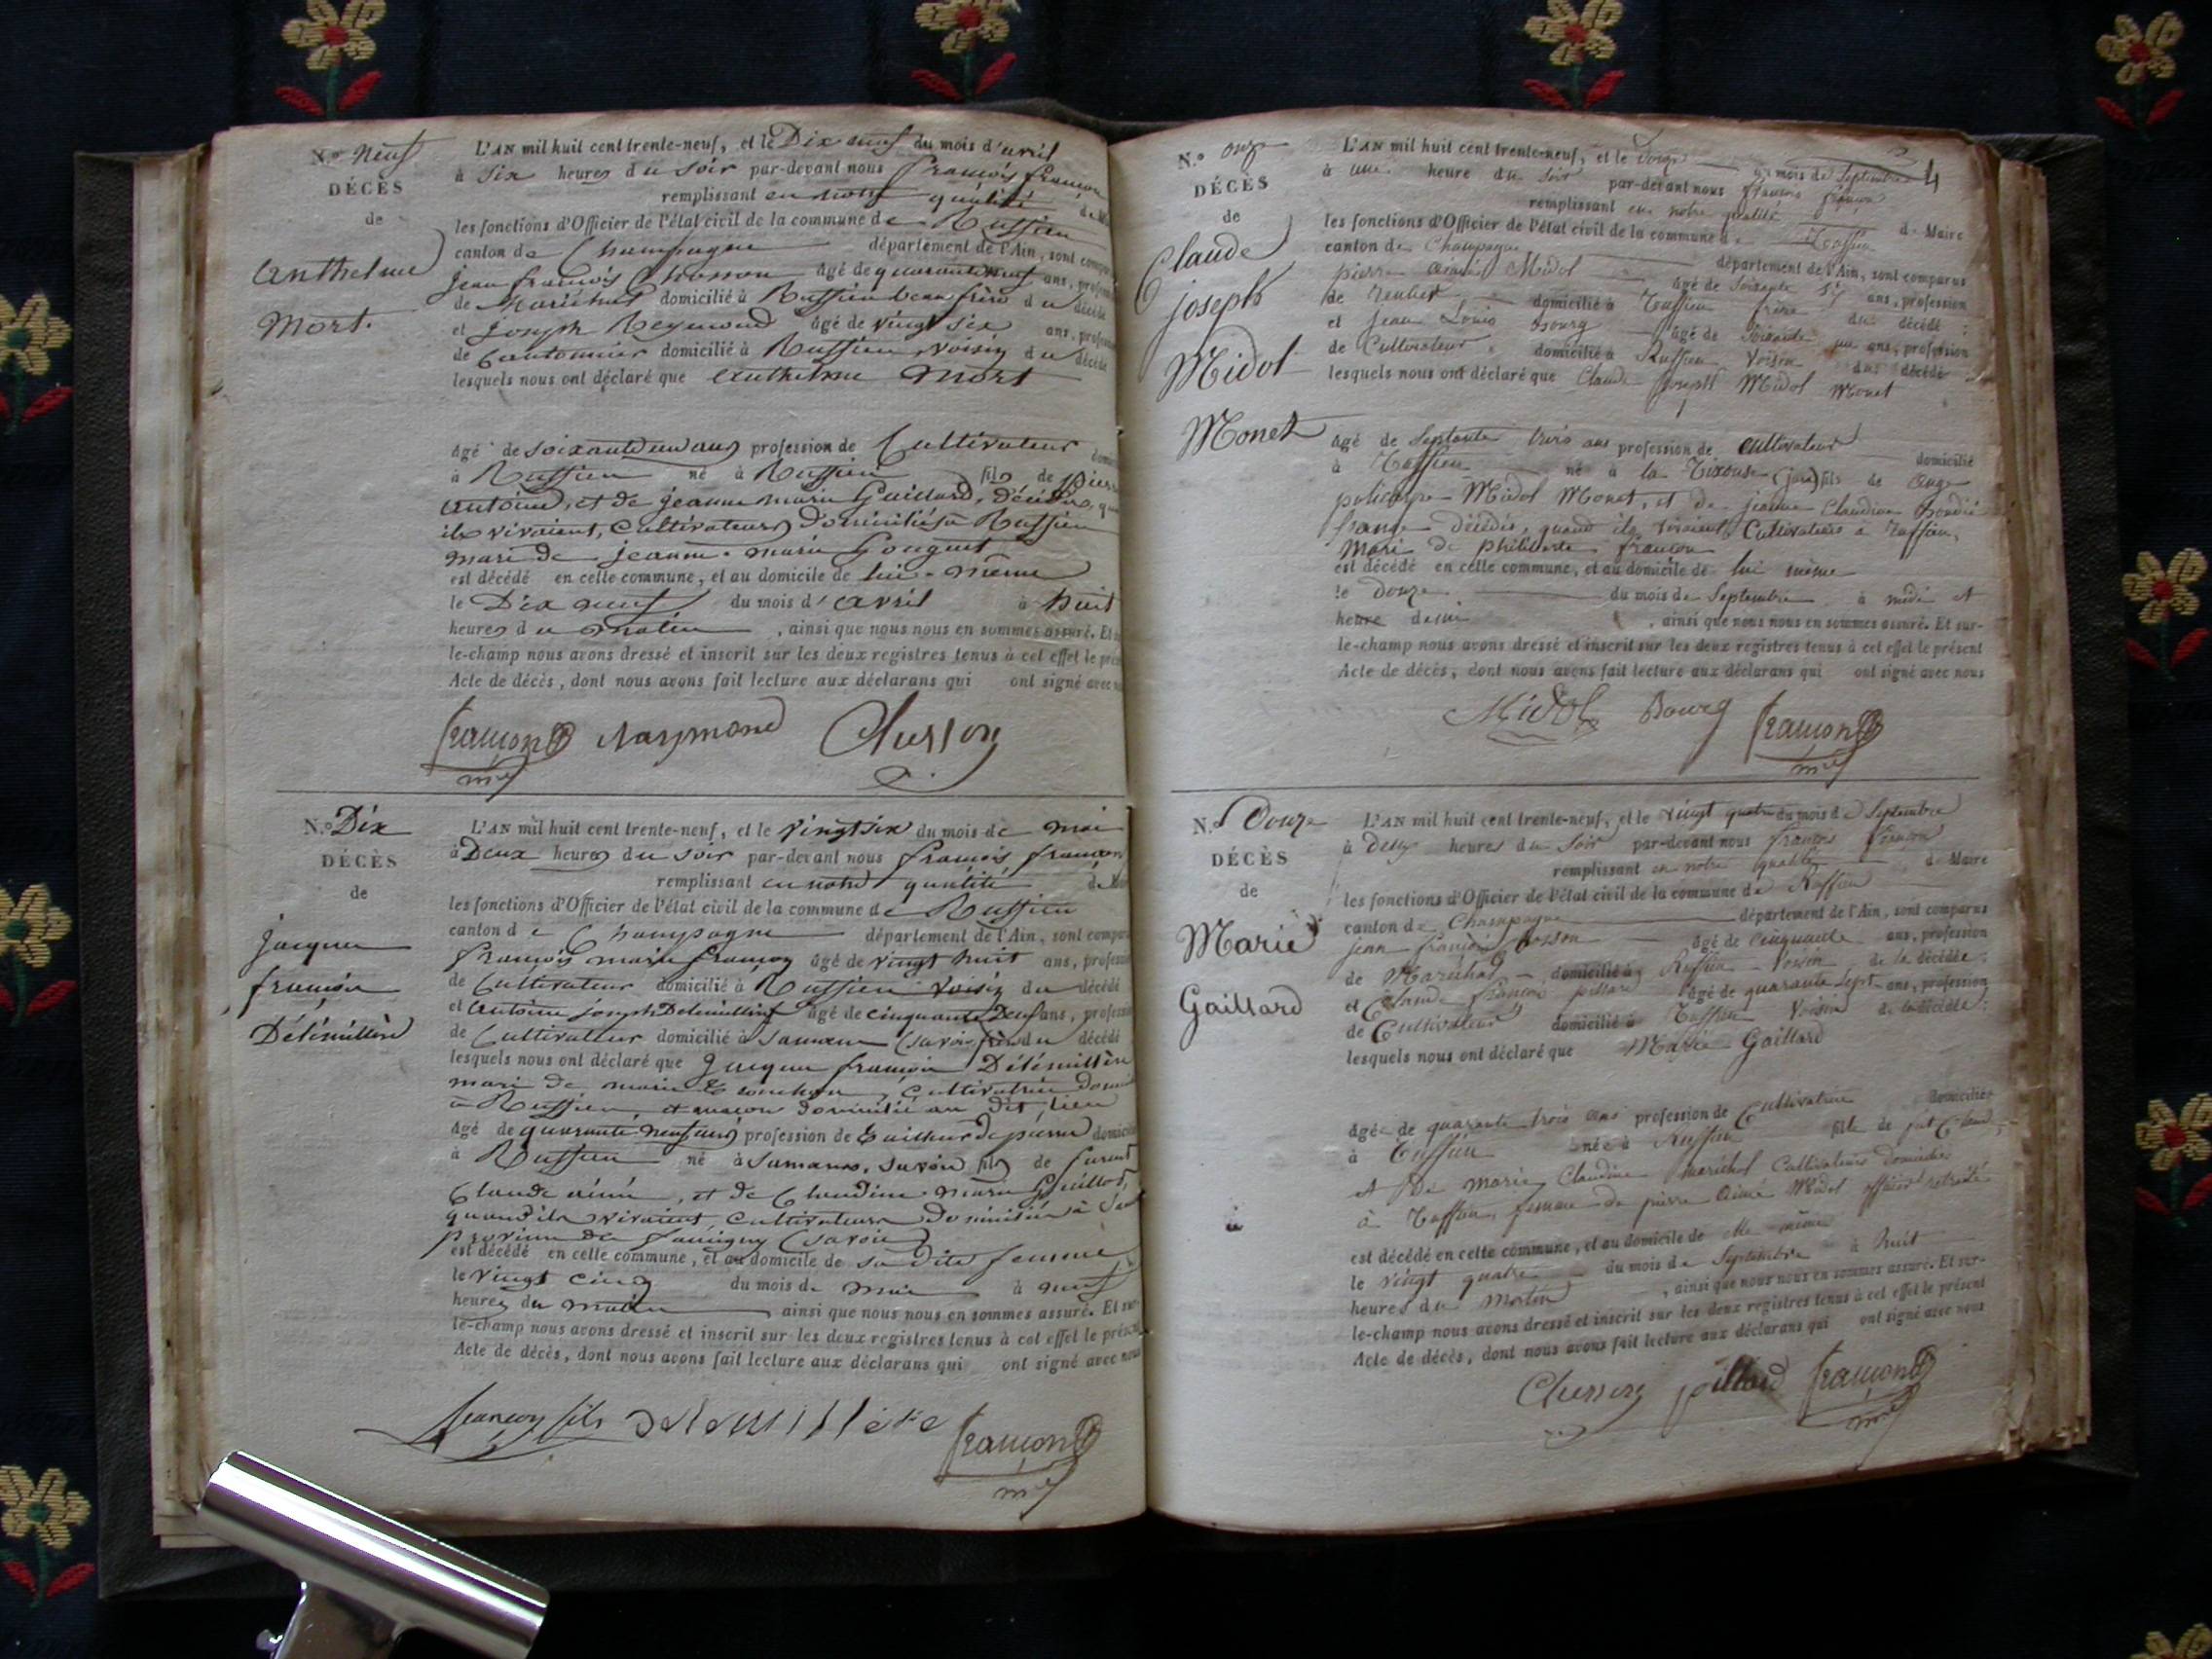 N.º neuf
DÉCÈS
de
Anthelme
Mort.
L'AN mil huit cent trente-neuf, et le Dix neuf du mois d'avril
à Six heures du Soir par-devant nous François françon
remplissant en notre qualité de
les fonctions d'Officier de l'état civil de la commune de Ruffieu
canton de Champagne département de l'Ain, sont
jean françois âgé de quarante neuf ans,
de Maréchal domicilié à Ruffieu beau frère du décédé
et joseph Reymond âgé de vingt six ans,
de Cantonnier domicilié à Ruffieu, voisin du décédé
lesquels nous ont déclaré que Anthelme Mort
âgé de soixante un ans profession de Cultivateur
à Ruffieu né à Ruffieu fils de
antoine, et de jeanne marie Gaillard, décédés,
ils vivaient, Cultivateurs Domiciliés à Ruffieu
mari de jeanne marie
est décédé en cette commune, et au domicile de lui-même
le Dix neuf du mois d'avril à huit
heures du matin, ainsi que nous nous en sommes assuré. Et
le-champ nous avons dressé et inscrit sur les deux registres tenus à cet effet le
Acte de décès, dont nous avons fait lecture aux déclarans qui ont signé avec
françon Raymond Chesson
N.º Dix
DÉCÈS
de
jacques
françois
Délémillère
L'AN mil huit cent trente-neuf, et le vingt six du mois de mai
à Deux heures du Soir par-devant nous françois françon
remplissant en notre qualité de
les fonctions d'Officier de l'état civil de la commune de Ruffieu
canton de Champagne département de l'Ain, sont
françois marie françon âgé de vingt huit ans,
de Cultivateur domicilié à Ruffieu voisin du décédé
et antoine joseph âgé de cinquante Deux ans,
de Cultivateur domicilié à (Savoie) frère du décédé
lesquels nous ont déclaré que jacques françois Délémillère
mari de marie , Cultivatrice
à Ruffieu, et domicilié au dit lieu
âgé de quarante neuf ans profession de tailleur de pierre
à Ruffieu né à , Savoie fils de
Claude aimé, et de Claudine marie
quand ils vivaient, cultivateurs Domiciliés à
province de faucigny (Savoie)
est décédé en cette commune, et au domicile de sa dite femme
le vingt cinq du mois de mai à neuf
heures du matin ainsi que nous nous en sommes assuré. Et
le-champ nous avons dressé et inscrit sur les deux registres tenus à cet effet le
Acte de décès, dont nous avons fait lecture aux déclarans qui ont signé avec nous
françon fils delemillère françon
N.º onze
DÉCÈS
de
Claude
joseph
Midol
Monet
4
L'AN mil huit cent trente-neuf, et le Douze du mois de Septembre
à une heure du Soir par-devant nous françois françon
remplissant en notre qualité de Maire
les fonctions d'Officier de l'état civil de la commune de Ruffieu
canton de Champagne département de l'Ain, sont comparus
pierre aimé Midol âgé de Soixante ans, profession
de domicilié à Ruffieu frère du décédé;
et jean Louis Bourg âgé de Soixante un ans, profession
de Cultivateur domicilié à Ruffieu Voisin du décédé
lesquels nous ont déclaré que Claude joseph Midol Monet
âgé de Septante trois ans profession de cultivateur domicilié
à Ruffieu né à la Rixouse (jura) fils de ange
policarpe Midol Monet, et de jeanne Claudine
décédés, quand ils vivaient Cultivateurs à Ruffieu,
Mari de philiberte françon
est décédé en cette commune, et au domicile de lui même
le Douze du mois de Septembre à midi et
heure demie, ainsi que nous nous en sommes assuré. Et sur-
le-champ nous avons dressé et inscrit sur les deux registres tenus à cet effet le présent
Acte de décès, dont nous avons fait lecture aux déclarans qui ont signé avec nous
Midol Bourg françon
N.º Douze
DÉCÈS
de
Marie
Gaillard
L'AN mil huit cent trente-neuf, et le vingt quatre du mois de Septembre
à deux heures du Soir par-devant nous françois françon
remplissant en notre qualité de Maire
les fonctions d'Officier de l'état civil de la commune de Ruffieu
canton de Champagne département de l'Ain, sont comparus
jean françois âgé de Cinquante ans, profession
de Maréchal domicilié à Ruffieu Voisin de la décédée;
et Claude françois pillard âgé de quarante Sept ans, profession
de Cultivateur domicilié à Ruffieu Voisin de la décédée;
lesquels nous ont déclaré que Marie Gaillard
âgée de quarante trois ans profession de Cultivatrice domiciliée
à Ruffieu née à Ruffieu fille de
et de marie Claudine maréchal Cultivateurs Domiciliés
à Ruffieu, femme de pierre aimé Midol officier retraité
est décédé en cette commune, et au domicile de elle même
le vingt quatre du mois de Septembre à huit
heures du matin, ainsi que nous nous en sommes assuré. Et sur-
le-champ nous avons dressé et inscrit sur les deux registres tenus à cet effet le présent
Acte de décès, dont nous avons fait lecture aux déclarans qui ont signé avec nous
Chesson pillard françon